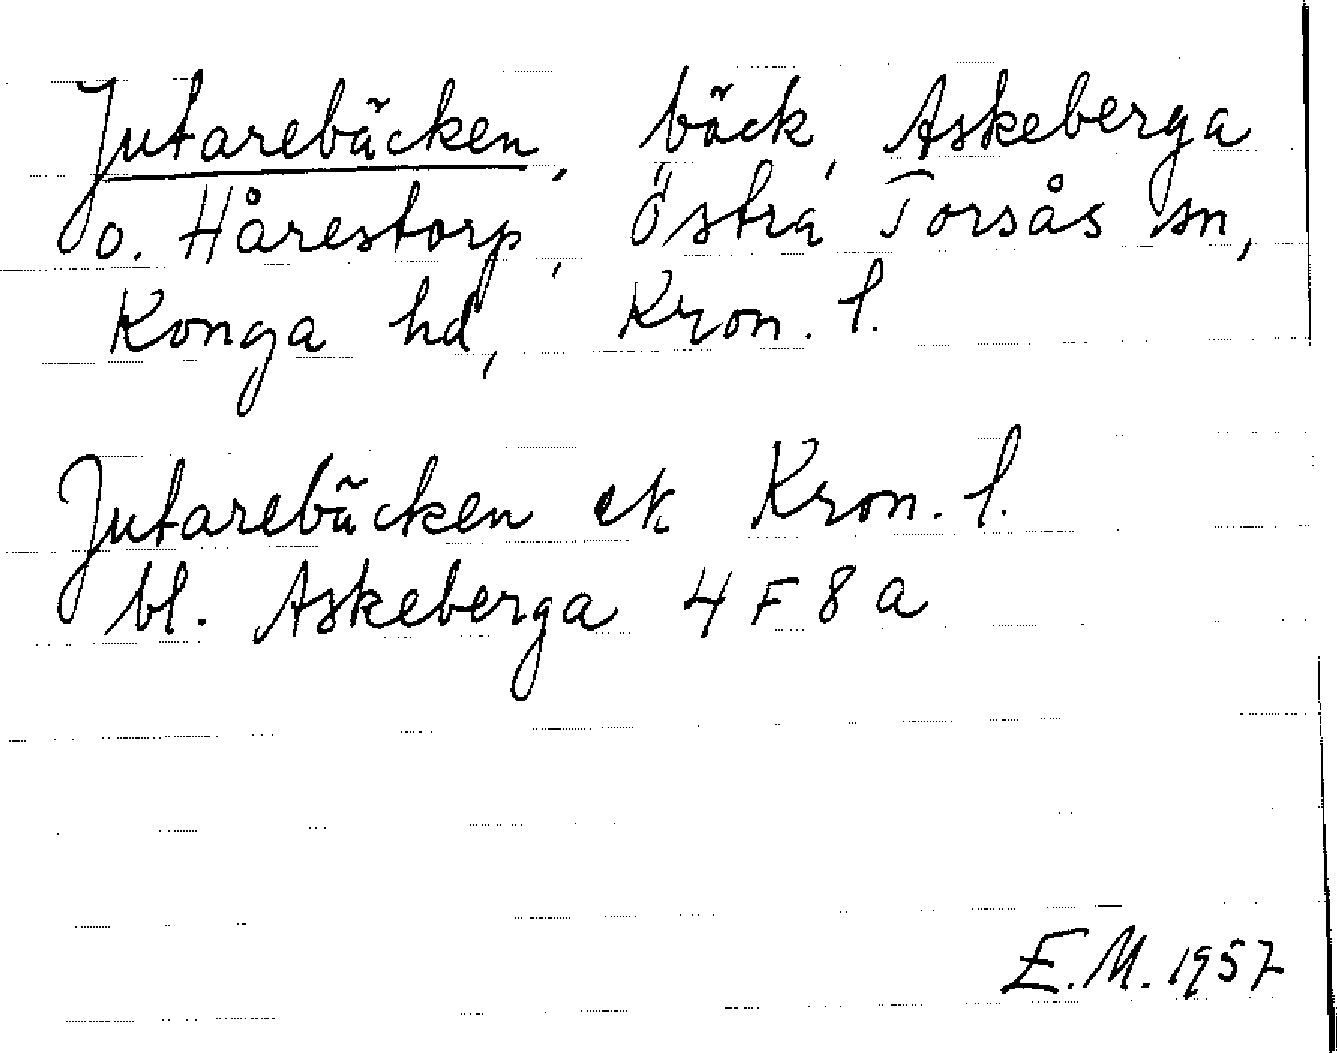 Jutarebäcken, bäck, Askeberga
o. Hårestorp, Östra Torsås sn,
Konga hd, Kron. l.
Jutarebäcken ek Kron. l.
bl. Askeberga 4 F 8 a
E.M. 1957